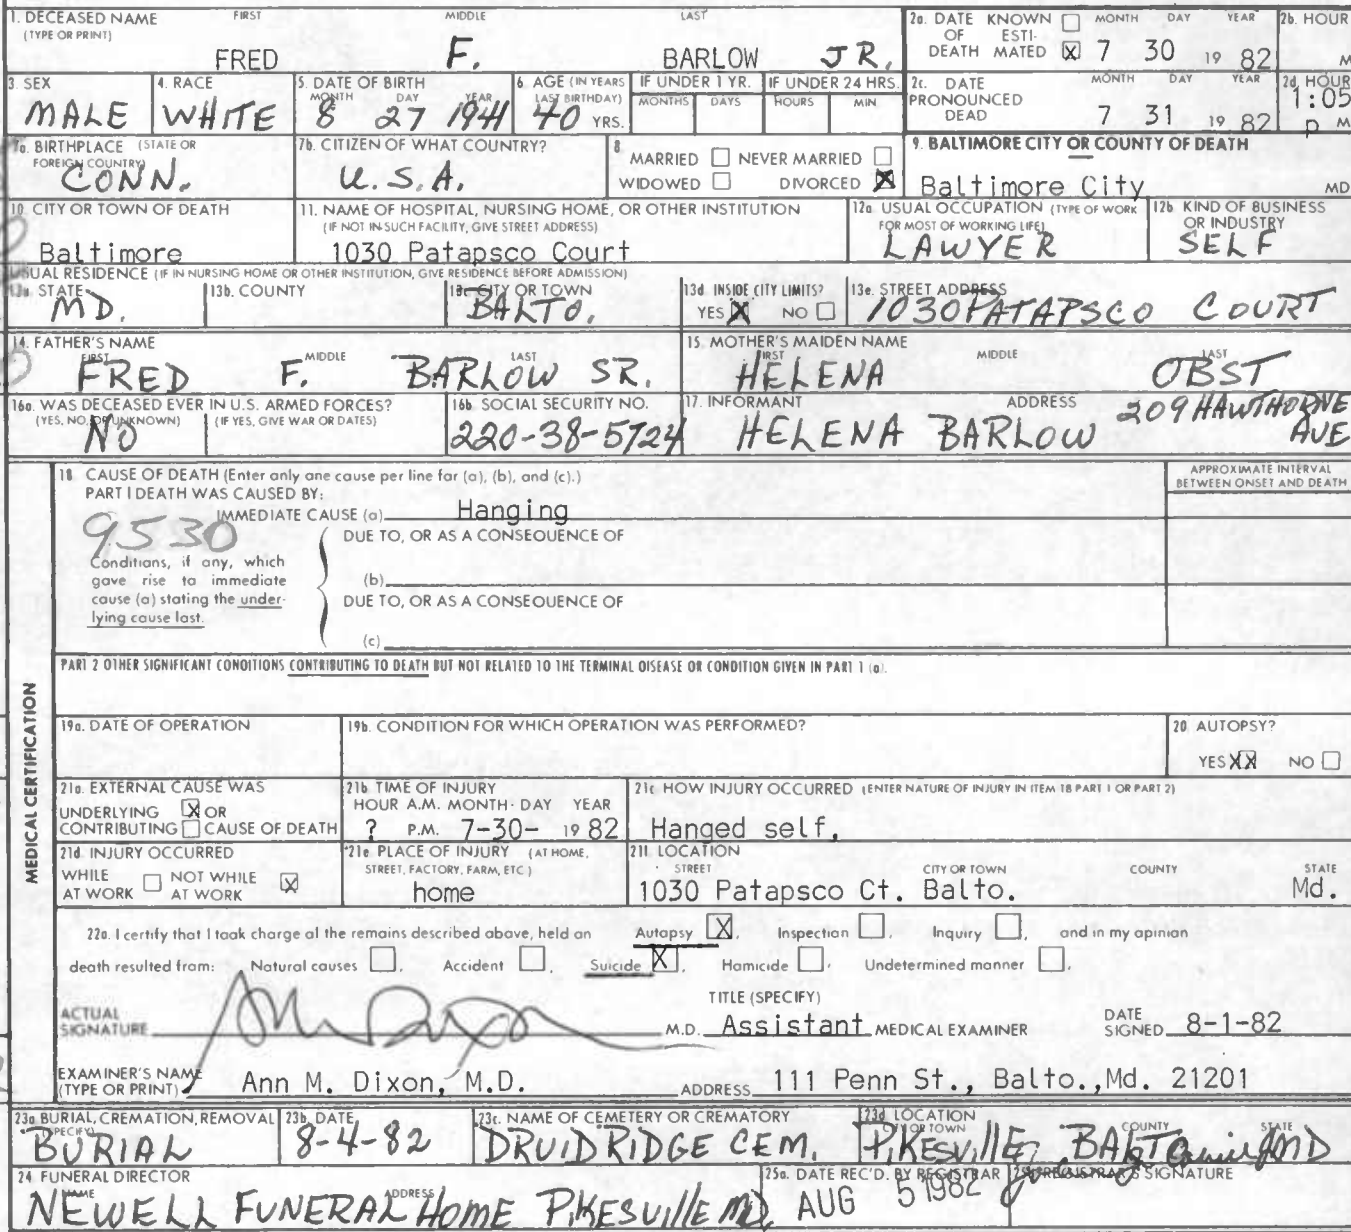 1. DECEASED NAME (TYPE OR PRINT) FIRST MIDDLE LAST
FRED F. BARLOW JR.
2a. DATE OF DEATH KNOWN ☐ ESTIMATED ☒ MONTH DAY YEAR
7 30 19 82
2b. HOUR
M
3. SEX
MALE
4. RACE
WHITE
5. DATE OF BIRTH MONTH DAY YEAR
8 27 1941
6. AGE (IN YEARS LAST BIRTHDAY)
40 YRS.
IF UNDER 1 YR. MONTHS DAYS
IF UNDER 24 HRS. HOURS MIN
2c. DATE PRONOUNCED DEAD MONTH DAY YEAR
7 31 19 82
2d. HOUR
1:05 p M
7a. BIRTHPLACE (STATE OR FOREIGN COUNTRY)
CONN.
7b. CITIZEN OF WHAT COUNTRY?
U.S.A.
8. MARRIED ☐ NEVER MARRIED ☐
WIDOWED ☐ DIVORCED ☒
9. BALTIMORE CITY OR COUNTY OF DEATH
Baltimore City MD
10. CITY OR TOWN OF DEATH
Baltimore
11. NAME OF HOSPITAL, NURSING HOME, OR OTHER INSTITUTION
(IF NOT IN SUCH FACILITY, GIVE STREET ADDRESS)
1030 Patapsco Court
12a. USUAL OCCUPATION (TYPE OF WORK FOR MOST OF WORKING LIFE)
LAWYER
12b. KIND OF BUSINESS OR INDUSTRY
SELF
USUAL RESIDENCE (IF IN NURSING HOME OR OTHER INSTITUTION, GIVE RESIDENCE BEFORE ADMISSION)
13a. STATE
MD.
13b. COUNTY
13c. CITY OR TOWN
BALTO.
13d. INSIDE CITY LIMITS?
YES ☒ NO ☐
13e. STREET ADDRESS
1030 PATAPSCO COURT
14. FATHER'S NAME FIRST MIDDLE LAST
FRED F. BARLOW SR.
15. MOTHER'S MAIDEN NAME FIRST MIDDLE LAST
HELENA OBST
16a. WAS DECEASED EVER IN U.S. ARMED FORCES?
(YES, NO, OR UNKNOWN) (IF YES, GIVE WAR OR DATES)
NO
16b. SOCIAL SECURITY NO.
220-38-5724
17. INFORMANT ADDRESS
HELENA BARLOW 209 HAWTHORNE AVE
MEDICAL CERTIFICATION
18. CAUSE OF DEATH (Enter only one cause per line for (a), (b), and (c).)
APPROXIMATE INTERVAL BETWEEN ONSET AND DEATH
PART I DEATH WAS CAUSED BY:
IMMEDIATE CAUSE (a) Hanging
9530
DUE TO, OR AS A CONSEQUENCE OF
Conditions, if any, which
gave rise to immediate
cause (a) stating the under-
lying cause last.
(b)
DUE TO, OR AS A CONSEQUENCE OF
(c)
PART 2 OTHER SIGNIFICANT CONDITIONS CONTRIBUTING TO DEATH BUT NOT RELATED TO THE TERMINAL DISEASE OR CONDITION GIVEN IN PART 1 (a).
19a. DATE OF OPERATION
19b. CONDITION FOR WHICH OPERATION WAS PERFORMED?
20. AUTOPSY?
YES XX NO ☐
21a. EXTERNAL CAUSE WAS
UNDERLYING ☒ OR
CONTRIBUTING ☐ CAUSE OF DEATH
21b. TIME OF INJURY
HOUR A.M. MONTH DAY YEAR
? P.M. 7-30- 19 82
21c. HOW INJURY OCCURRED (ENTER NATURE OF INJURY IN ITEM 18 PART 1 OR PART 2)
Hanged self.
21d. INJURY OCCURRED
WHILE AT WORK ☐ NOT WHILE AT WORK ☒
21e. PLACE OF INJURY (AT HOME, STREET, FACTORY, FARM, ETC.)
home
21f. LOCATION
STREET CITY OR TOWN COUNTY STATE
1030 Patapsco Ct. Balto. Md.
22a. I certify that I took charge of the remains described above, held an Autopsy ☒, Inspection ☐, Inquiry ☐, and in my opinion
death resulted from: Natural causes ☐, Accident ☐, Suicide ☒, Homicide ☐, Undetermined manner ☐.
ACTUAL SIGNATURE
M.D.
TITLE (SPECIFY)
Assistant MEDICAL EXAMINER
DATE SIGNED 8-1-82
EXAMINER'S NAME (TYPE OR PRINT) Ann M. Dixon, M.D.
ADDRESS 111 Penn St., Balto., Md. 21201
23a. BURIAL, CREMATION, REMOVAL (SPECIFY)
BURIAL
23b. DATE
8-4-82
23c. NAME OF CEMETERY OR CREMATORY
DRUID RIDGE CEM.
23d. LOCATION CITY OR TOWN COUNTY STATE
PIKESVILLE, BALTO MD
24. FUNERAL DIRECTOR NAME ADDRESS
NEWELL FUNERAL HOME PIKESVILLE MD
25a. DATE REC'D. BY REGISTRAR
AUG 5 1982
25b. REGISTRAR'S SIGNATURE